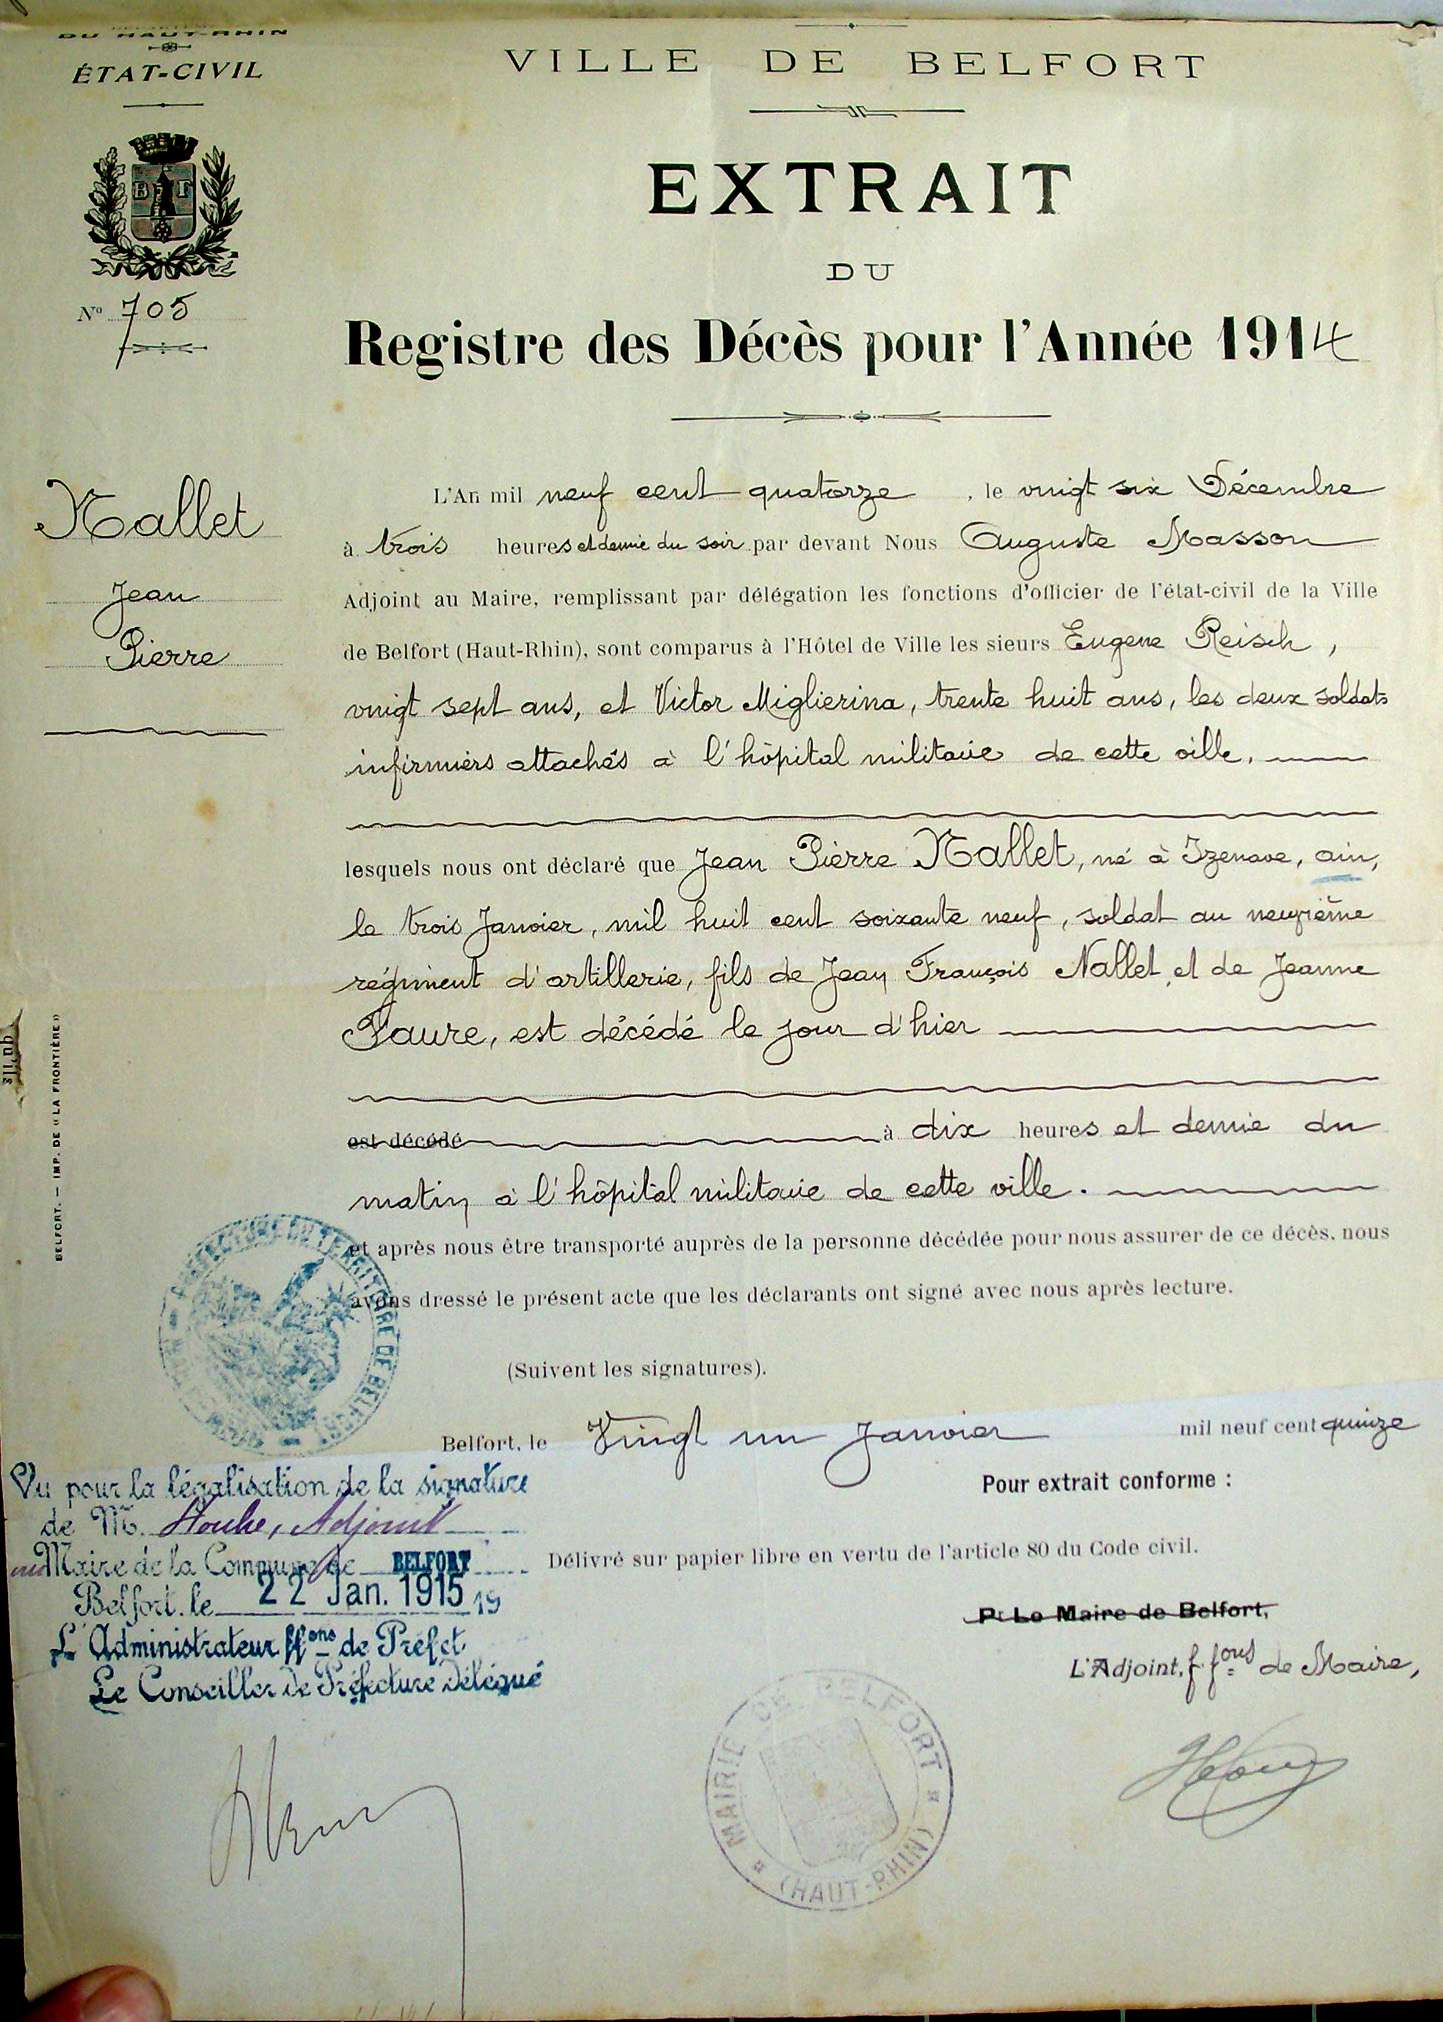 DU HAUT-RHIN
ÉTAT-CIVIL
B F
Nº 705
VILLE DE BELFORT
EXTRAIT
DU
Registre des Décès pour l'Année 1914
Nallet
Jean
Pierre
L'An mil neuf cent quatorze, le vingt six Décembre
à trois heures et demie du soir par devant Nous Auguste Masson
Adjoint au Maire, remplissant par délégation les fonctions d'officier de l'état-civil de la Ville
de Belfort (Haut-Rhin), sont comparus à l'Hôtel de Ville les sieurs Eugène Reisch,
vingt sept ans, et Victor Miglierina, trente huit ans, les deux soldats
infirmiers attachés à l'hôpital militaire de cette ville.
lesquels nous ont déclaré que Jean Pierre Nallet, né à Izenave, ain,
le trois Janvier, mil huit cent soixante neuf, soldat au neuvième
régiment d'artillerie, fils de Jean François Nallet et de Jeanne
Faure, est décédé le jour d'hier
est décédé à dix heures et demie du
matin à l'hôpital militaire de cette ville.
et après nous être transporté auprès de la personne décédée pour nous assurer de ce décès, nous
avons dressé le présent acte que les déclarants ont signé avec nous après lecture.
(Suivent les signatures).
Belfort, le Vingt un Janvier mil neuf cent quinze
Pour extrait conforme :
Délivré sur papier libre en vertu de l'article 80 du Code civil.
Pr Le Maire de Belfort,
L'Adjoint, f. fons de Maire,
BELFORT. — IMP. DE «LA FRONTIÈRE»
PRÉFECTURE DU TERRITOIRE DE BELFORT
Vu pour la légalisation de la signature
de M. Adjoint
Maire de la Commune de BELFORT
Belfort, le 22 Jan. 1915 19
L'Administrateur ffons de Préfet
Le Conseiller de Préfecture Délégué
MAIRIE DE BELFORT
(HAUT-RHIN)